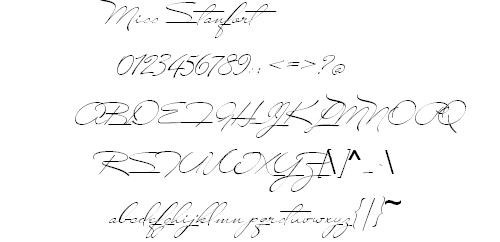 Miss Stanfort
0123456789:;<=>?@
ABCDEFGHIJKLMNOPQ
RSTUVWXYZ[\]^_`\
abcdefghijklmnopqrstuvwxyz{|}~